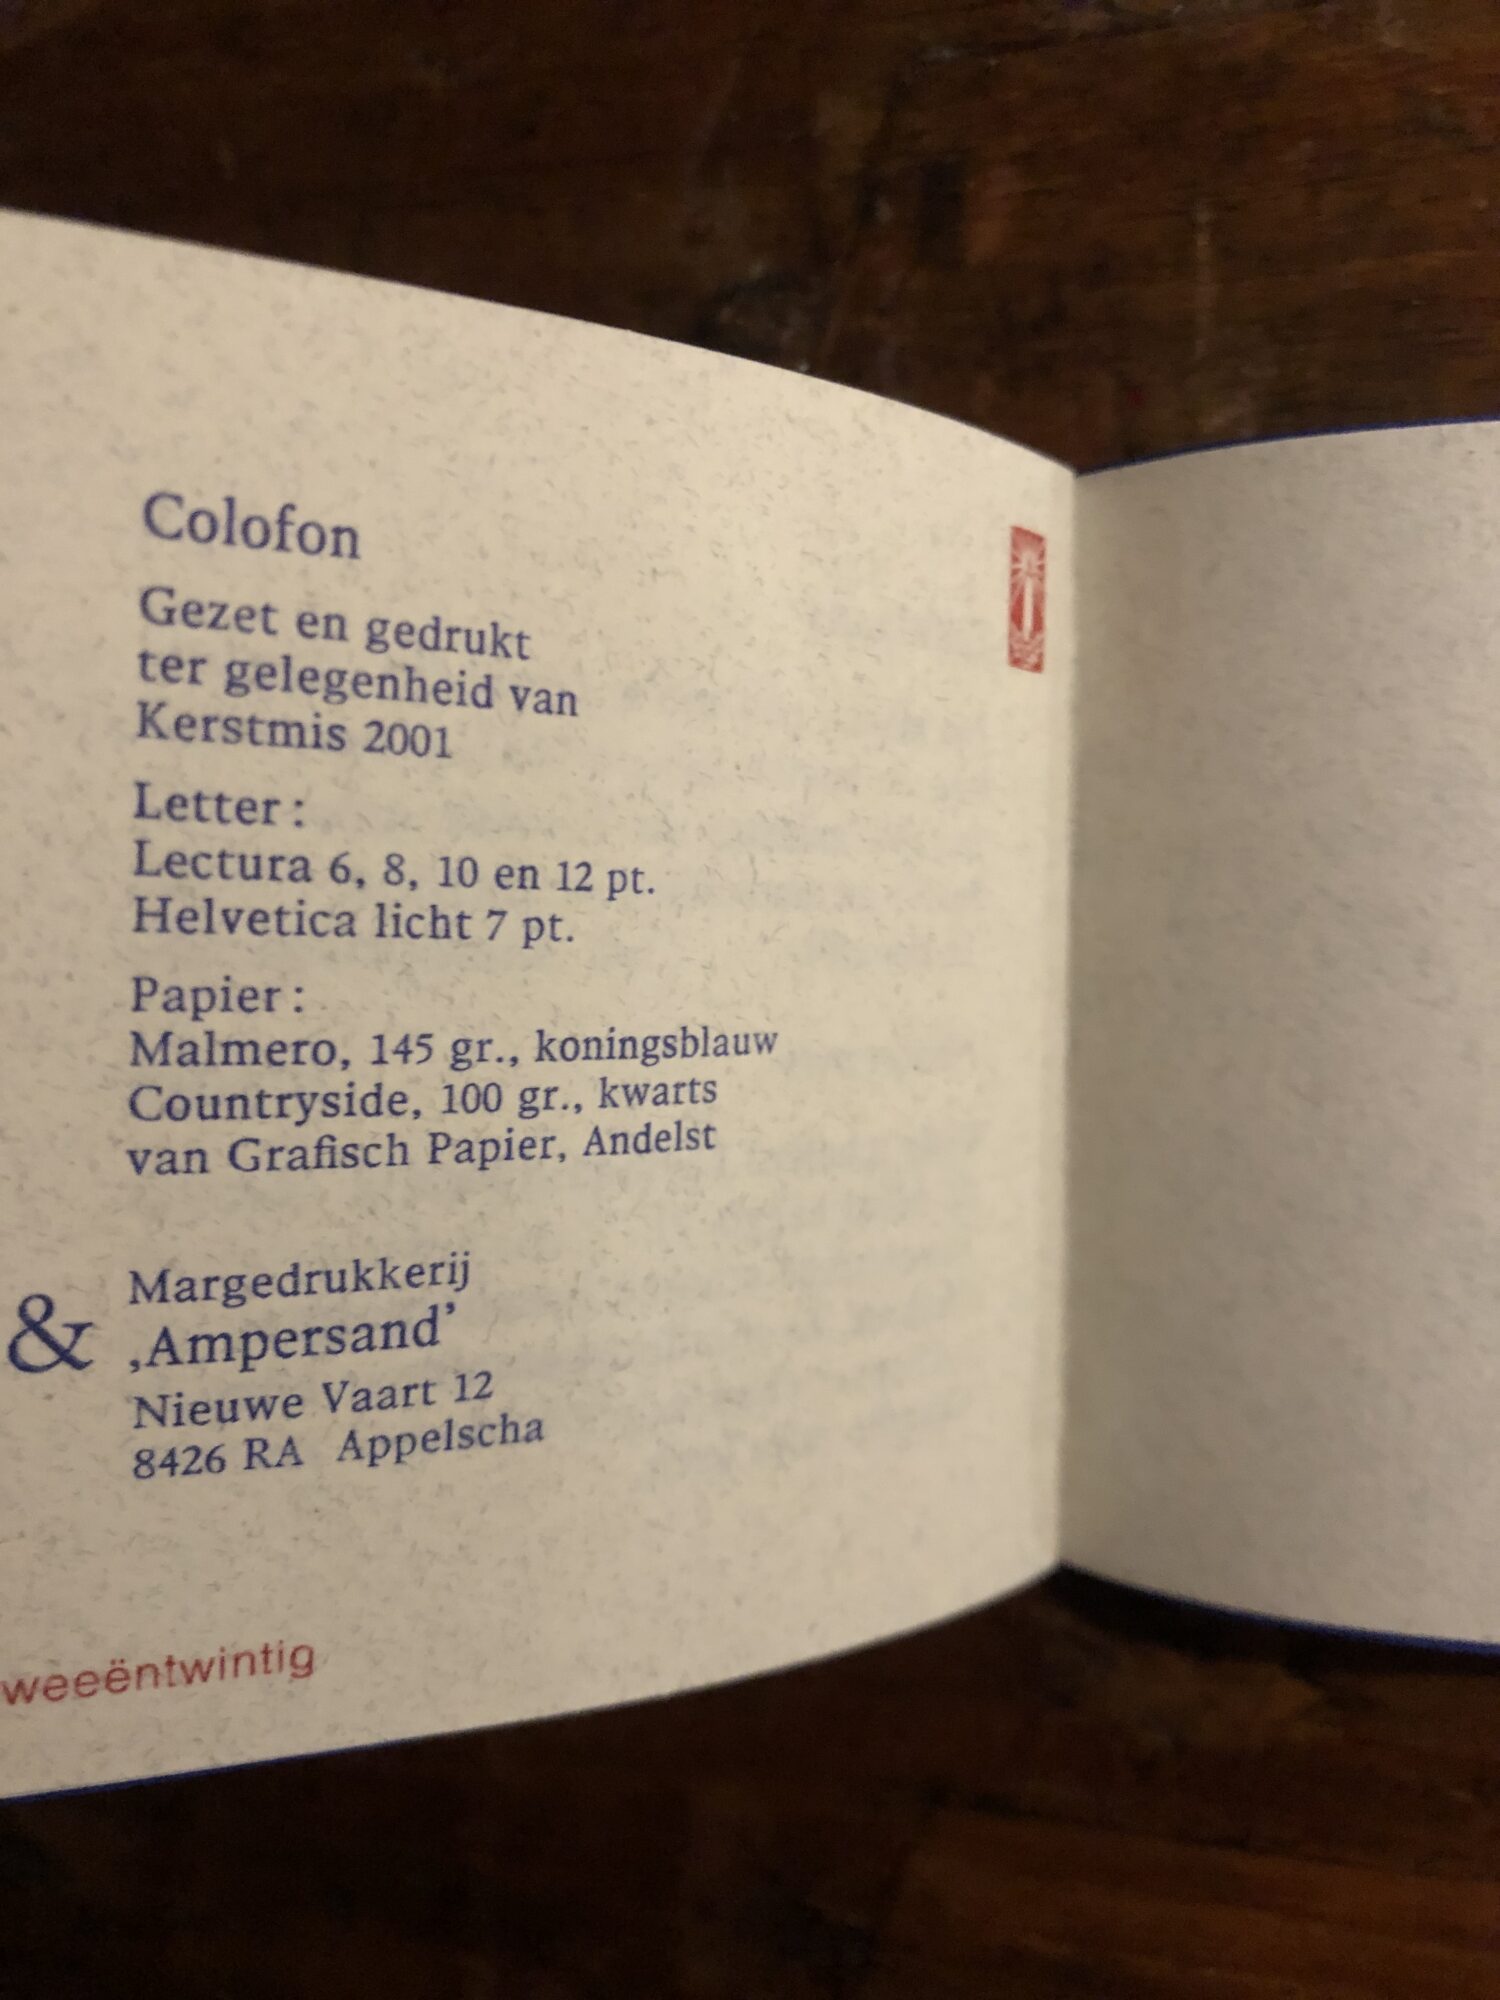 Colofon
Gezet en gedrukt
ter gelegenheid van
Kerstmis 2001
Letter:
Lectura 6, 8, 10 en 12 pt.
Helvetica licht 7 pt.
Papier:
Malmero, 145 gr., koningsblauw
Countryside, 100 gr., kwarts
van Grafisch Papier, Andelst
Margedrukkerij
& ‚Ampersand’
Nieuwe Vaart 12
8426 RA Appelscha
weeëntwintig